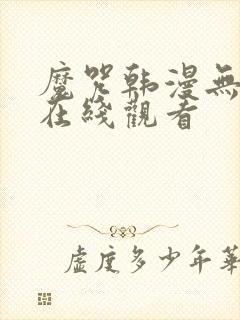 魔咒韩漫無
在綫觀看
虛度多少年華